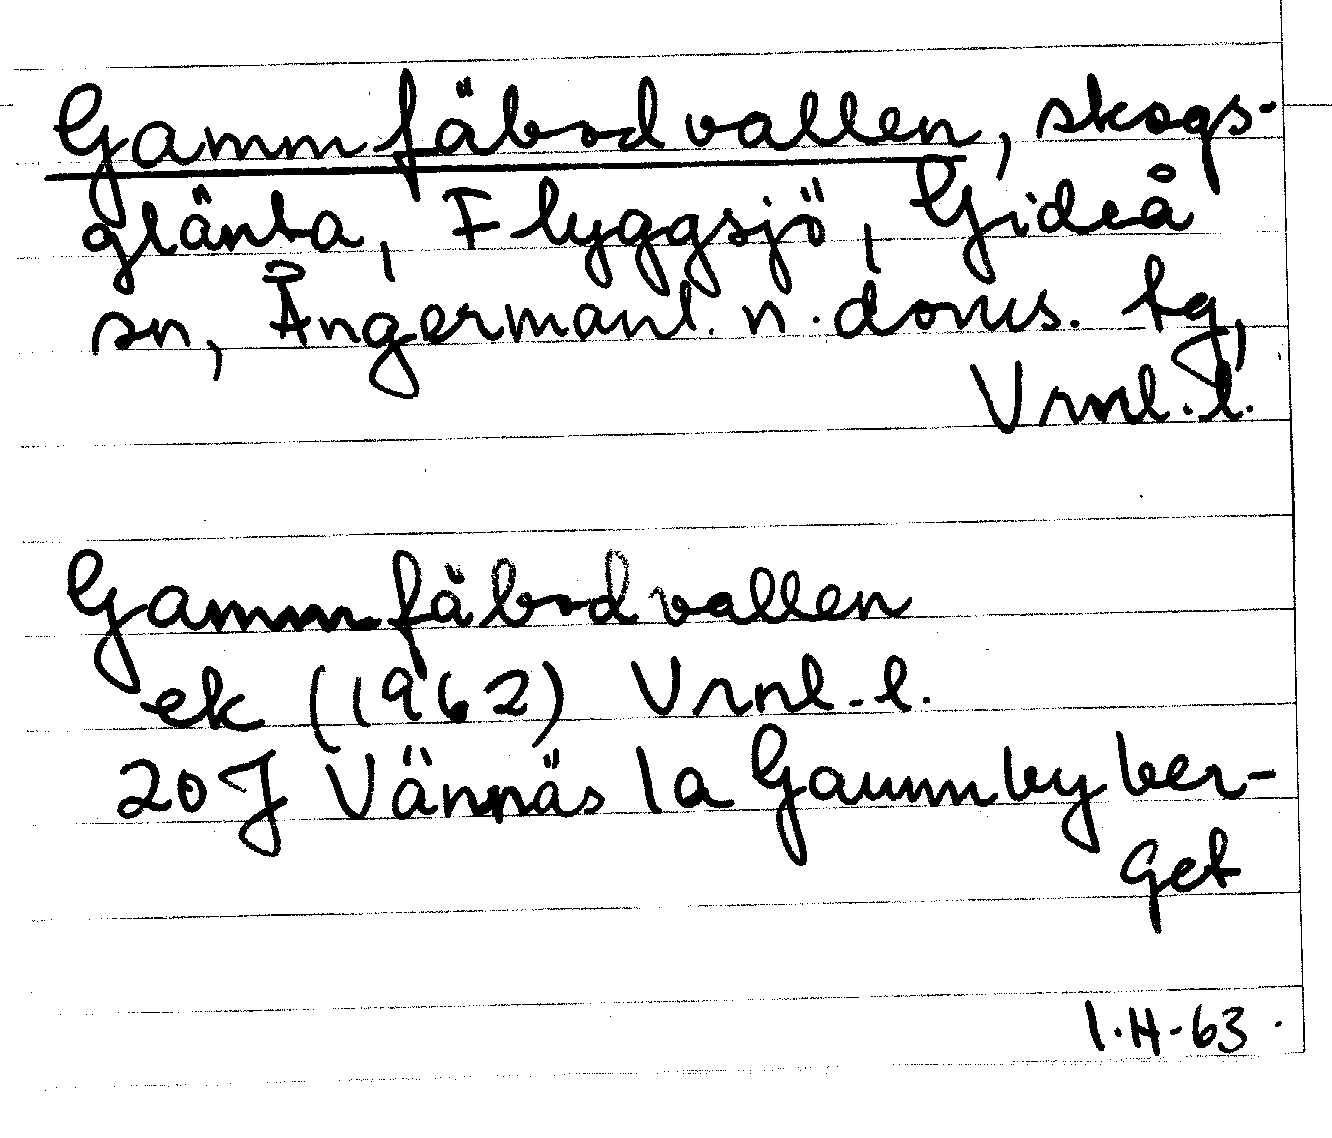 Gammfäbodvallen, skogs-
glänta, Flyggsjö, Gideå
sn, Ångermanl. n. doms. tg,
Vrml. l.
Gammfäbodvallen
ek (1962) Vrml. l.
20J Vännäs 1a Gammbyber-
get
I.H-63.